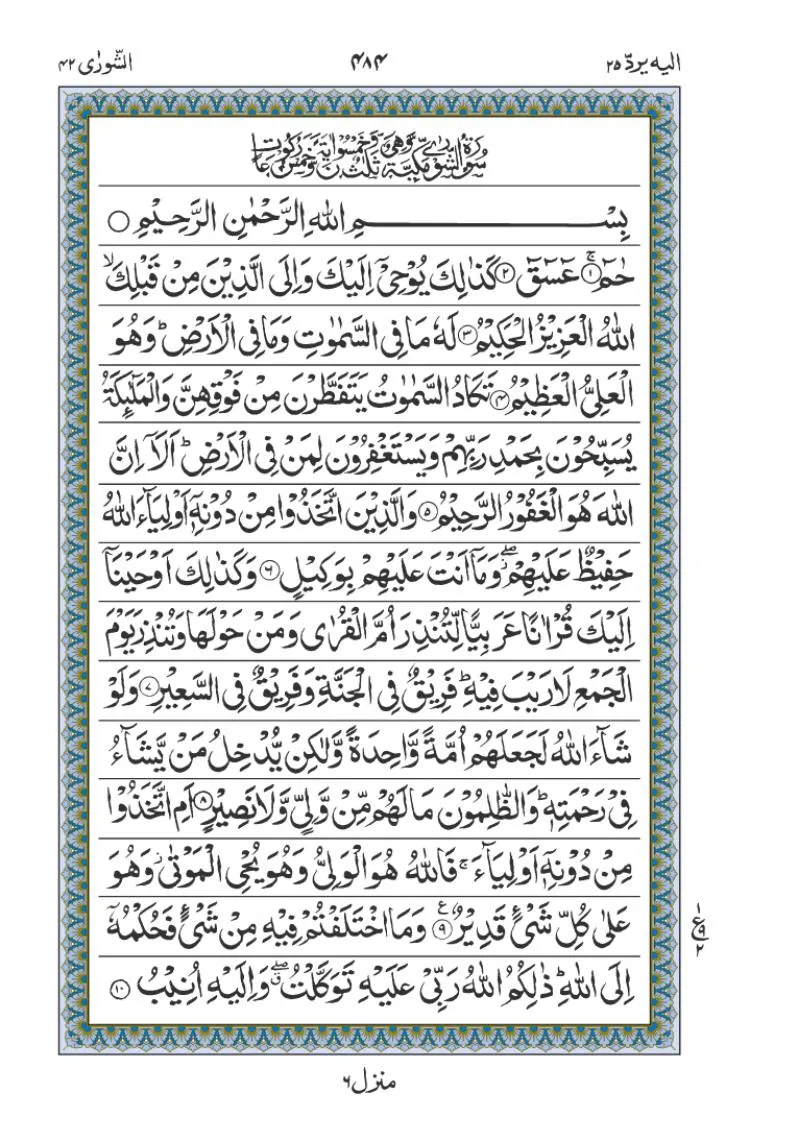 الیه یردّ ۲۵ ۴۸۴ الشّورٰی ۴۲
سُوْرَةُ الشُّوْرٰى مَكِّيَّةٌ وَّهِىَ ثَلٰثٌ وَّخَمْسُوْنَ اٰيَةً وَّخَمْسُ رُكُوْعَاتٍ
بِسْمِ اللهِ الرَّحْمٰنِ الرَّحِيْمِ ○
حٰمٓ ۚ﴿۱﴾ عٓسٓقٓ ﴿۲﴾ كَذٰلِكَ يُوْحِيْٓ اِلَيْكَ وَاِلَى الَّذِيْنَ مِنْ قَبْلِكَ ۙ
اللهُ الْعَزِيْزُ الْحَكِيْمُ ﴿۳﴾ لَهٗ مَا فِى السَّمٰوٰتِ وَمَا فِى الْاَرْضِ ؕ وَهُوَ
الْعَلِىُّ الْعَظِيْمُ ﴿۴﴾ تَكَادُ السَّمٰوٰتُ يَتَفَطَّرْنَ مِنْ فَوْقِهِنَّ وَالْمَلٰٓئِكَةُ
يُسَبِّحُوْنَ بِحَمْدِ رَبِّهِمْ وَيَسْتَغْفِرُوْنَ لِمَنْ فِى الْاَرْضِ ؕ اَلَاۤ اِنَّ
اللهَ هُوَ الْغَفُوْرُ الرَّحِيْمُ ﴿۵﴾ وَالَّذِيْنَ اتَّخَذُوْا مِنْ دُوْنِهٖٓ اَوْلِيَآءَ اللهُ
حَفِيْظٌ عَلَيْهِمْ ۖؗ وَمَاۤ اَنْتَ عَلَيْهِمْ بِوَكِيْلٍ ﴿۶﴾ وَكَذٰلِكَ اَوْحَيْنَاۤ
اِلَيْكَ قُرْاٰنًا عَرَبِيًّا لِّتُنْذِرَ اُمَّ الْقُرٰى وَمَنْ حَوْلَهَا وَتُنْذِرَ يَوْمَ
الْجَمْعِ لَا رَيْبَ فِيْهِ ؕ فَرِيْقٌ فِى الْجَنَّةِ وَفَرِيْقٌ فِى السَّعِيْرِ ﴿۷﴾ وَلَوْ
شَآءَ اللهُ لَجَعَلَهُمْ اُمَّةً وَّاحِدَةً وَّلٰكِنْ يُّدْخِلُ مَنْ يَّشَآءُ
فِىْ رَحْمَتِهٖ ؕ وَالظّٰلِمُوْنَ مَا لَهُمْ مِّنْ وَّلِىٍّ وَّلَا نَصِيْرٍ ﴿۸﴾ اَمِ اتَّخَذُوْا
مِنْ دُوْنِهٖٓ اَوْلِيَآءَ ۚ فَاللهُ هُوَ الْوَلِىُّ وَهُوَ يُحْىِ الْمَوْتٰى ؗ وَهُوَ
عَلٰى كُلِّ شَىْءٍ قَدِيْرٌ ﴿۹﴾ ع وَمَا اخْتَلَفْتُمْ فِيْهِ مِنْ شَىْءٍ فَحُكْمُهٗٓ
اِلَى اللهِ ؕ ذٰلِكُمُ اللهُ رَبِّىْ عَلَيْهِ تَوَكَّلْتُ ۖۗ وَاِلَيْهِ اُنِيْبُ ﴿۱۰﴾
۱
ع ۹
۲
منزل ۶